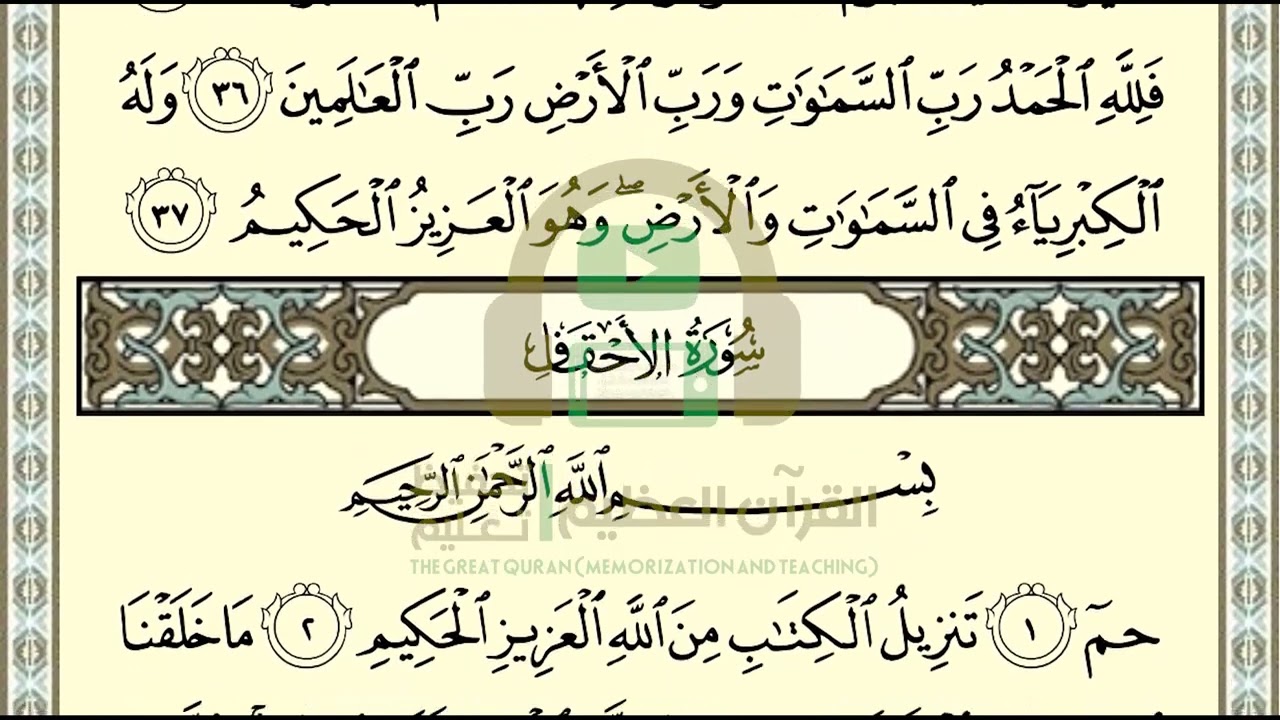 فَلِلَّهِ ٱلْحَمْدُ رَبِّ ٱلسَّمَٰوَٰتِ وَرَبِّ ٱلْأَرْضِ رَبِّ ٱلْعَٰلَمِينَ ٣٦ وَلَهُ
ٱلْكِبْرِيَآءُ فِى ٱلسَّمَٰوَٰتِ وَٱلْأَرْضِ ۖ وَهُوَ ٱلْعَزِيزُ ٱلْحَكِيمُ ٣٧
سُورَةُ الأَحْقَافِ
بِسْمِ ٱللَّهِ ٱلرَّحْمَٰنِ ٱلرَّحِيمِ
القرآن العظيم تحفيظ تعليم
THE GREAT QURAN (MEMORIZATION AND TEACHING)
حمٓ ١ تَنزِيلُ ٱلْكِتَٰبِ مِنَ ٱللَّهِ ٱلْعَزِيزِ ٱلْحَكِيمِ ٢ مَا خَلَقْنَا